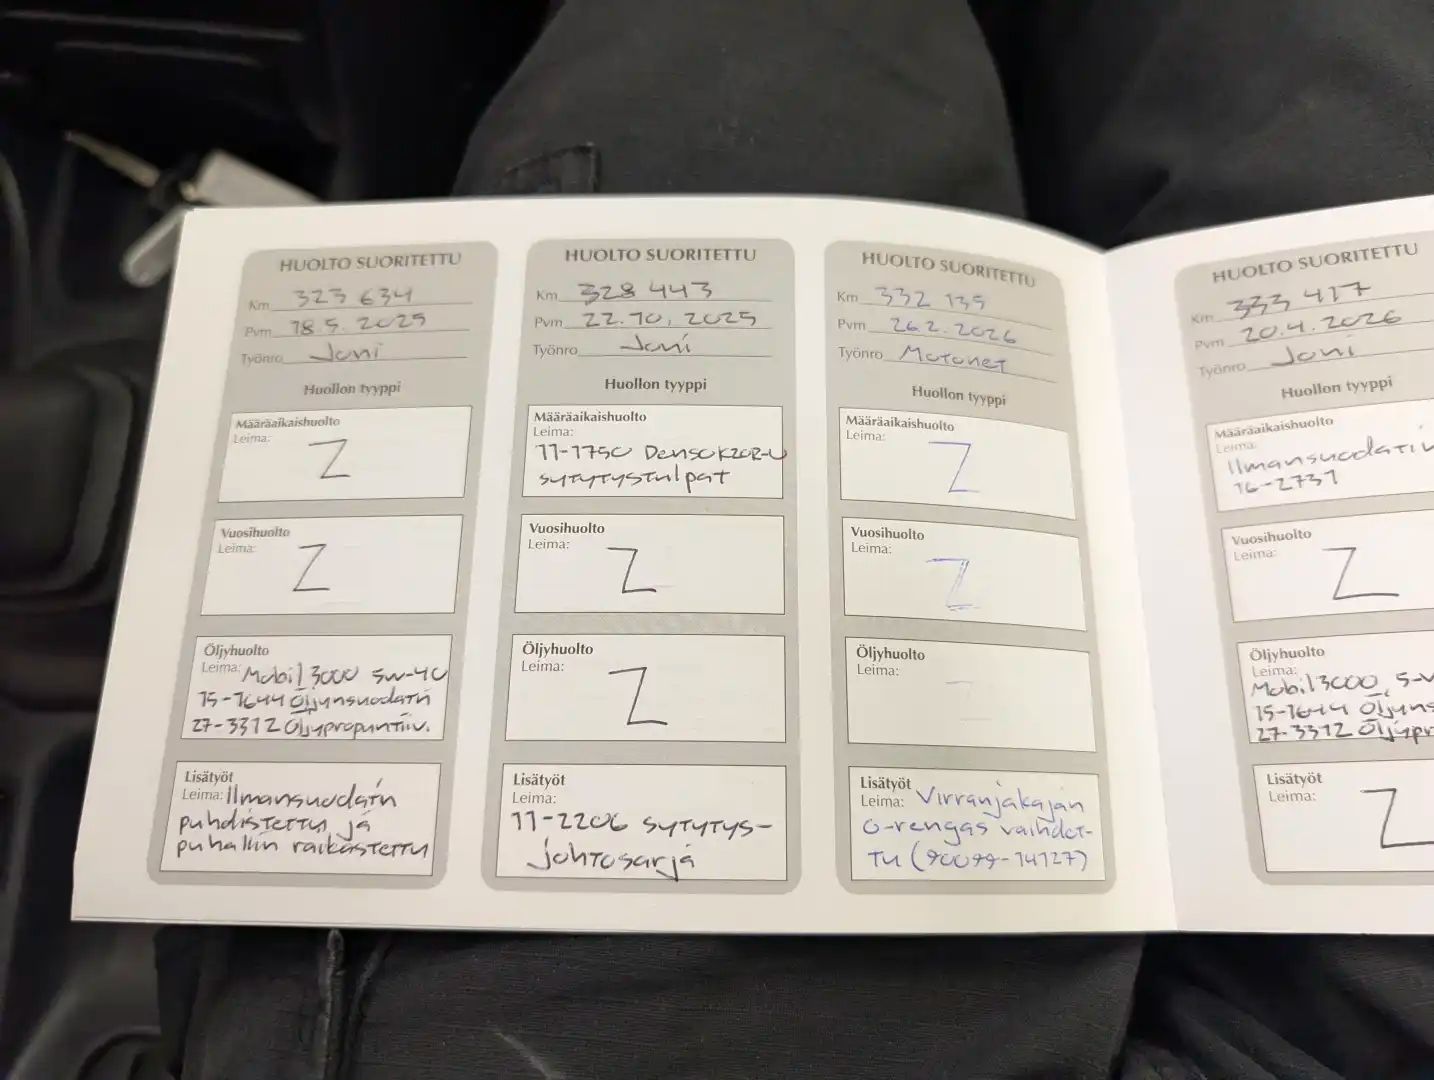 HUOLTO SUORITETTU
Km 323 634
Pvm 18.5.2025
Työnro Joni
Huollon tyyppi
Määräaikaishuolto
Leima:
Z
Vuosihuolto
Leima:
Z
Öljyhuolto
Leima: Mobil 3000 5w-40
15-1644 Öljynsuodatin
27-3312 Öljypropun tiiv.
Lisätyöt
Leima: Ilmansuodatin
puhdistettu ja
puhallin raikastettu
HUOLTO SUORITETTU
Km 328 443
Pvm 22.10.2025
Työnro Joni
Huollon tyyppi
Määräaikaishuolto
Leima:
11-1750 Denso K20R-U
sytytystulpat
Vuosihuolto
Leima:
Z
Öljyhuolto
Leima:
Z
Lisätyöt
Leima:
11-2206 sytytys-
johtosarja
HUOLTO SUORITETTU
Km 332 135
Pvm 26.2.2026
Työnro Motonet
Huollon tyyppi
Määräaikaishuolto
Leima:
Z
Vuosihuolto
Leima:
Z
Öljyhuolto
Leima:
Lisätyöt
Leima: Virranjakajan
o-rengas vaihdet-
tu (90099-14127)
HUOLTO SUORITETTU
Km 333 417
Pvm 20.4.2026
Työnro Joni
Huollon tyyppi
Määräaikaishuolto
Leima:
Ilmansuodatin
16-2731
Vuosihuolto
Leima:
Z
Öljyhuolto
Leima:
Mobil 3000 5-W
15-1644 Öljyns
27-3312 Öljypr
Lisätyöt
Leima:
Z